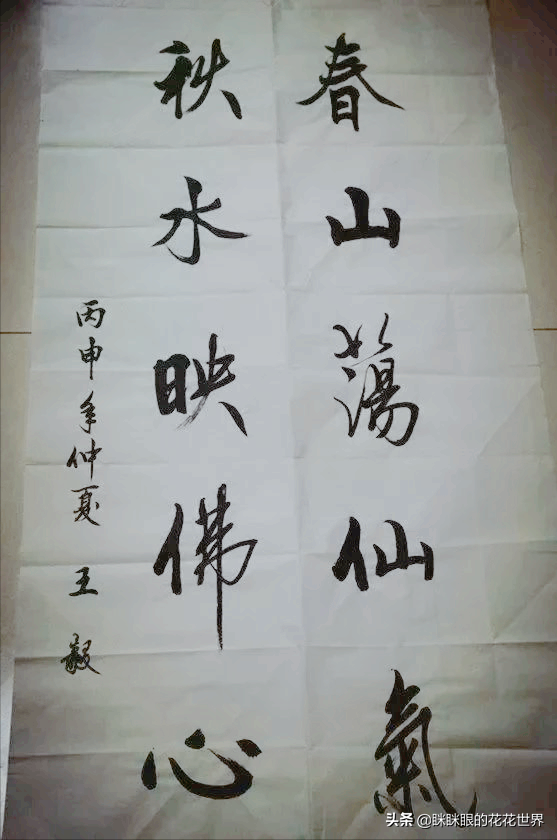 春山蕩仙氣
秋水映佛心
丙申年仲夏 王毅
头条 @眯眯眼的花花世界